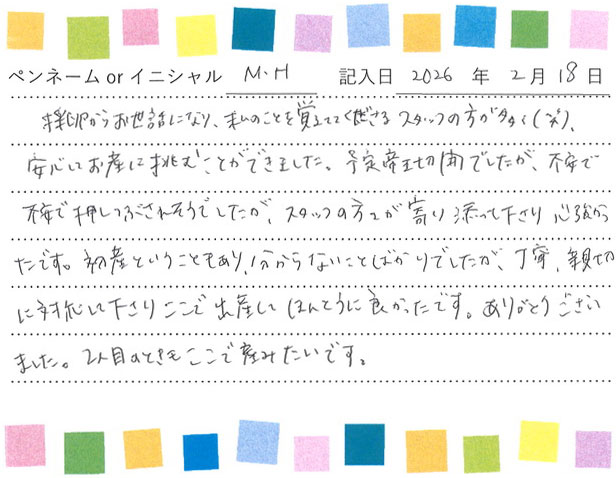 ペンネーム or イニシャル M・H 記入日 2026 年 2 月 18 日
採卵からお世話になり、私のことを覚えててくださるスタッフの方が多く(笑)、
安心してお産に挑むことができました。予定帝王切開でしたが、不安で
不安で押しつぶされそうでしたが、スタッフの方々が寄り添って下さり心強かっ
たです。初産ということもあり、分からないことばかりでしたが、丁寧、親切
に対応して下さりここで出産してほんとうに良かったです。ありがとうござい
ました。2人目のときもここで産みたいです。